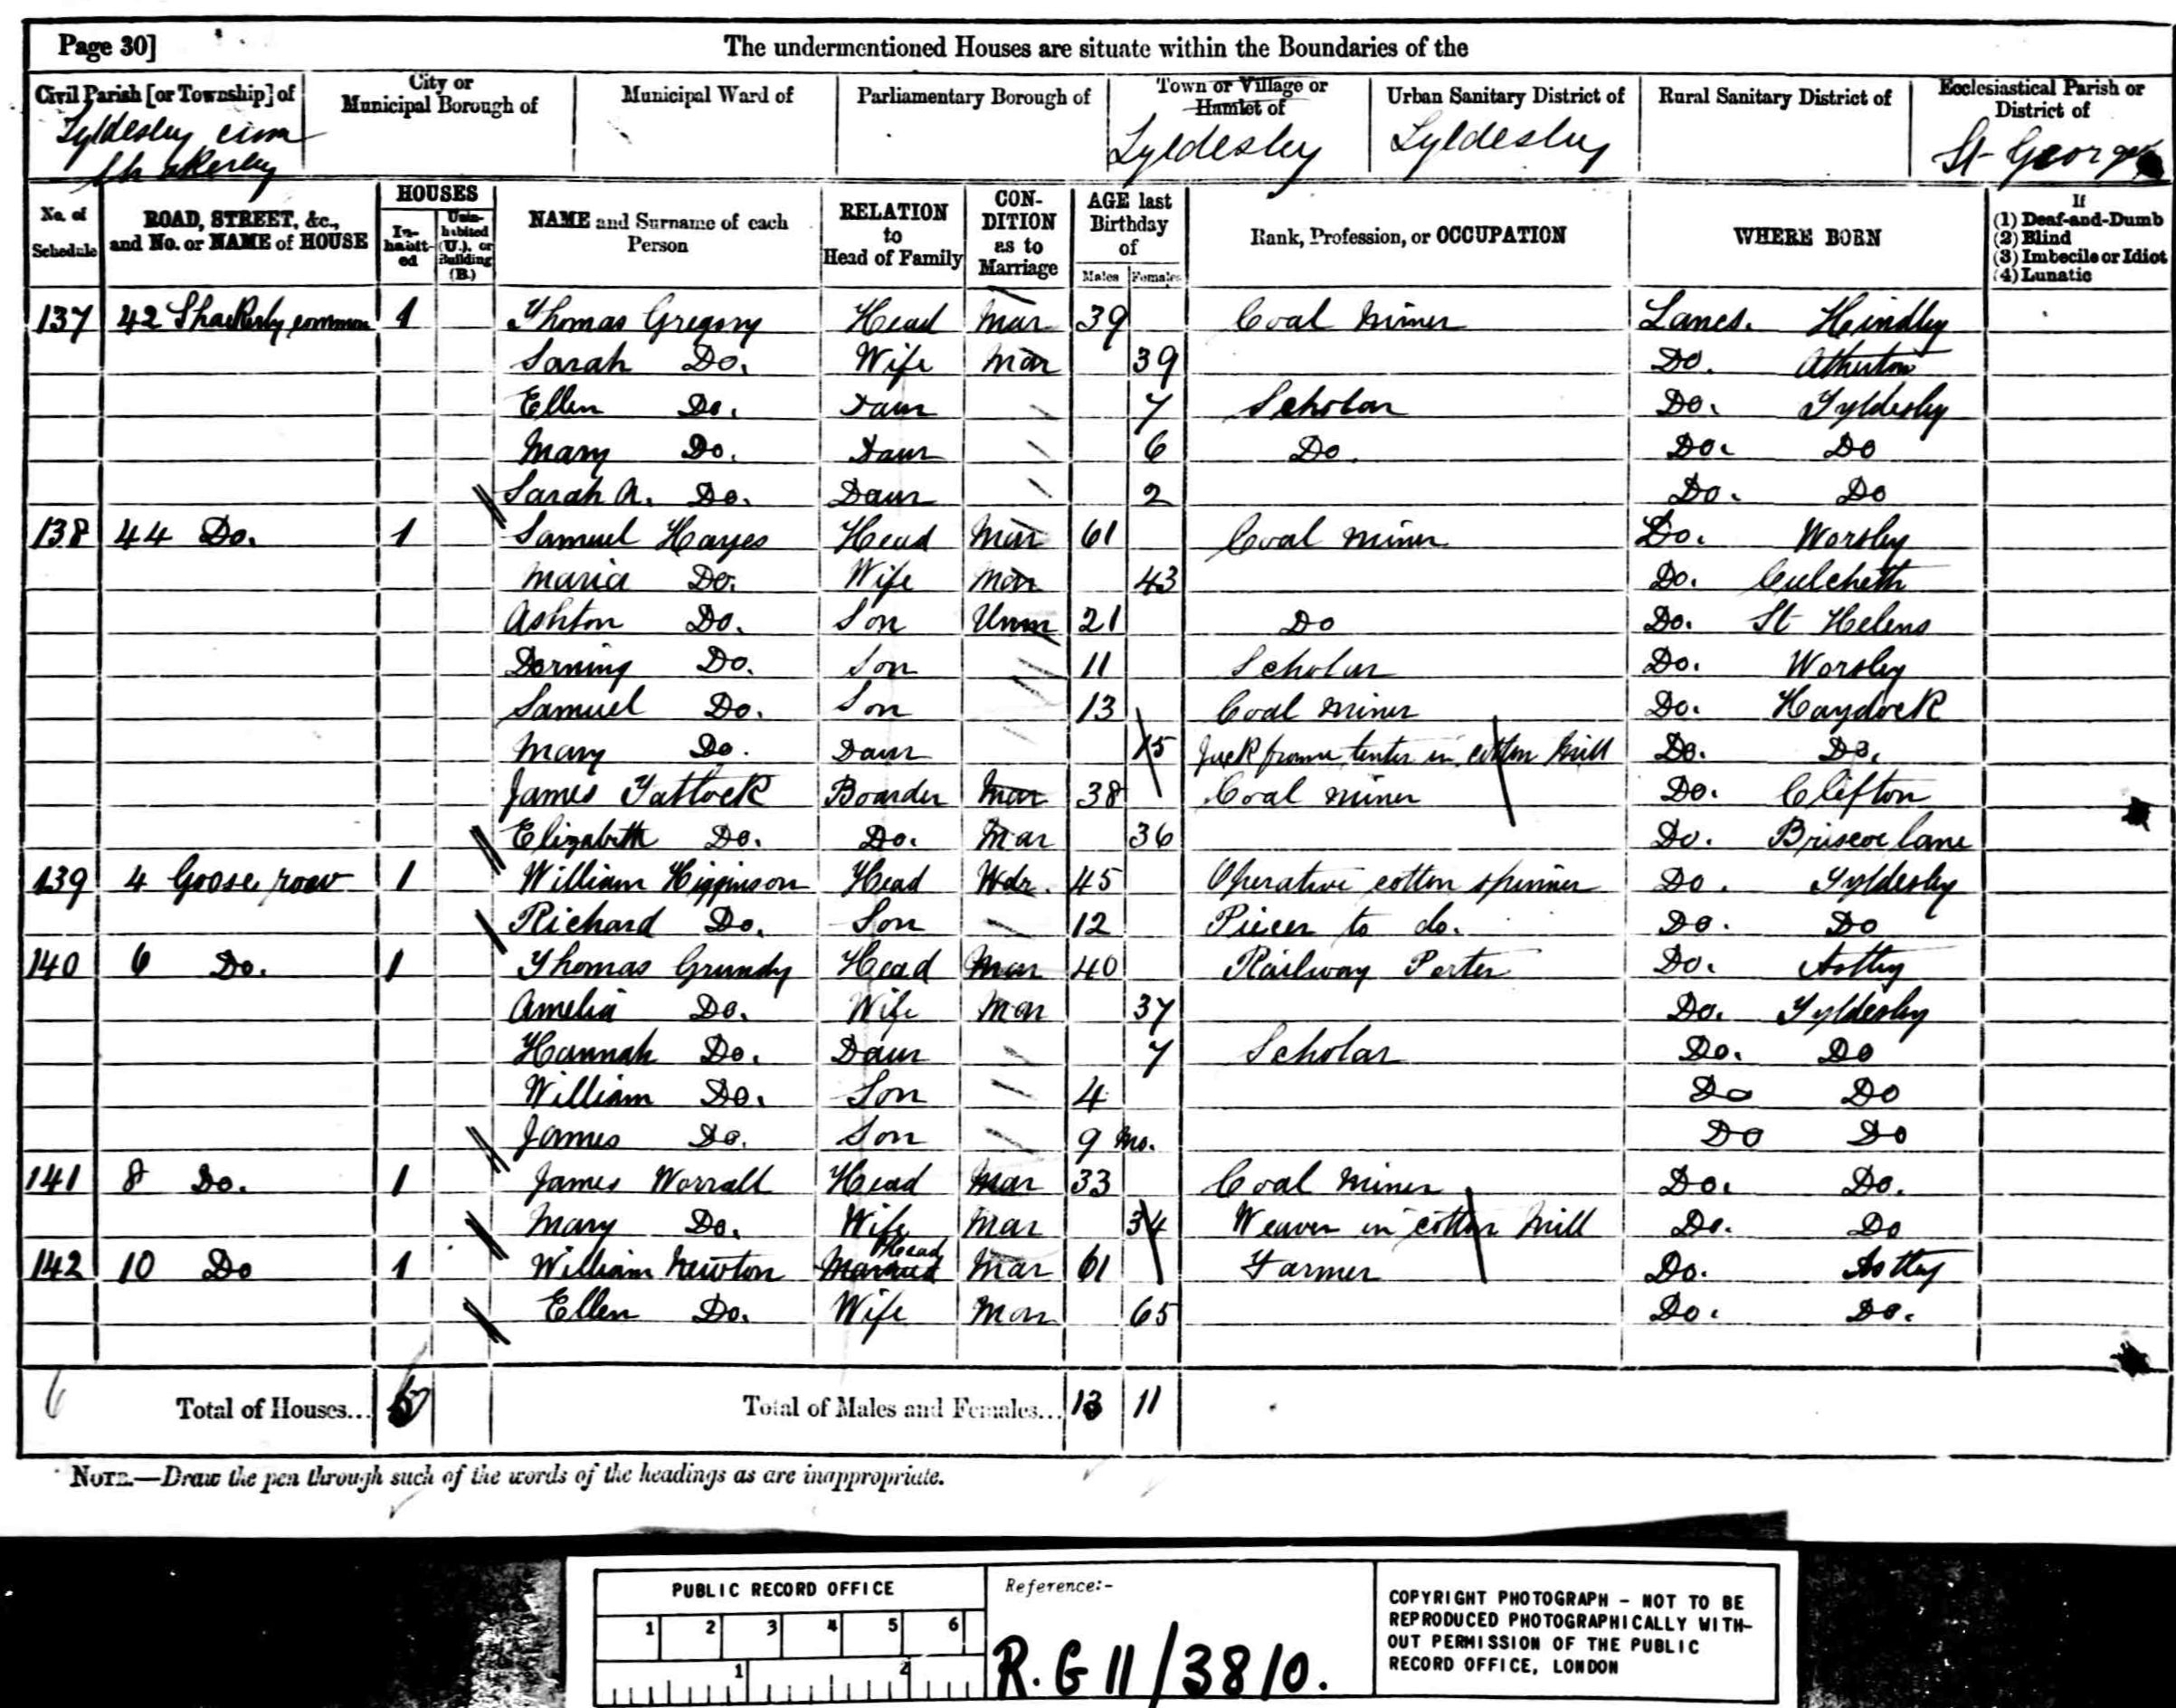 Page 30]
The undermentioned Houses are situate within the Boundaries of the
Civil Parish [or Township] of
City or Municipal Borough of
Municipal Ward of
Parliamentary Borough of
Town or Village or Hamlet of
Urban Sanitary District of
Rural Sanitary District of
Ecclesiastical Parish or District of
Tyldesley cum Shakerley
Tyldesley
Tyldesley
St Georges
No. of Schedule
ROAD, STREET, &c., and No. or NAME of HOUSE
HOUSES
In-habit-ed
Unin-habited (U.), or Building (B.)
NAME and Surname of each Person
RELATION to Head of Family
CON-DITION as to Marriage
AGE last Birthday of
Males Females
Rank, Profession, or OCCUPATION
WHERE BORN
If
(1) Deaf-and-Dumb
(2) Blind
(3) Imbecile or Idiot
(4) Lunatic
137 42 Shakerly common 1 Thomas Gregory Head Mar 39 Coal Miner Lancs. Hindley
Sarah Do. Wife Mar 39 Do. Atherton
Ellen Do. Daur 7 Scholar Do. Tyldesley
Mary Do. Daur 6 Do. Do. Do
Sarah A. Do. Daur 2 Do. Do
138 44 Do. 1 Samuel Hayes Head Mar 61 Coal miner Do. Worsley
Maria Do. Wife Mar 43 Do. Culcheth
Ashton Do. Son Unm 21 Do Do. St Helens
Dorning Do. Son 11 Scholar Do. Worsley
Samuel Do. Son 13 Coal miner Do. Haydock
Mary Do. Daur 15 Jack frame tenter in cotton Mill Do. Do.
James Tatlock Boarder Mar 38 Coal miner Do. Clifton
Elizabeth Do. Do. Mar 36 Do. Briscoe lane
139 4 Goose row 1 William Higginson Head Wdr. 45 Operative cotton spinner Do. Tyldesley
Richard Do. Son 12 Piecer to do. Do. Do
140 6 Do. 1 Thomas Grundy Head Mar 40 Railway Porter Do. Astley
Amelia Do. Wife Mar 37 Do. Tyldesley
Hannah Do. Daur 7 Scholar Do. Do
William Do. Son 4 Do Do
James Do. Son 9 mo. Do Do
141 8 Do. 1 James Worrall Head Mar 33 Coal Miner Do. Do.
Mary Do. Wife Mar 34 Weaver in cotton Mill Do. Do
142 10 Do 1 William Newton Head Mar 61 Farmer Do. Astley
Ellen Do. Wife Mar 65 Do. Do.
6 Total of Houses... Total of Males and Females... 13 11
NOTE.—Draw the pen through such of the words of the headings as are inappropriate.
PUBLIC RECORD OFFICE
1 2 3 4 5 6
1 2
Reference:-
R.G 11/3810.
COPYRIGHT PHOTOGRAPH - NOT TO BE
REPRODUCED PHOTOGRAPHICALLY WITH-
OUT PERMISSION OF THE PUBLIC
RECORD OFFICE, LONDON